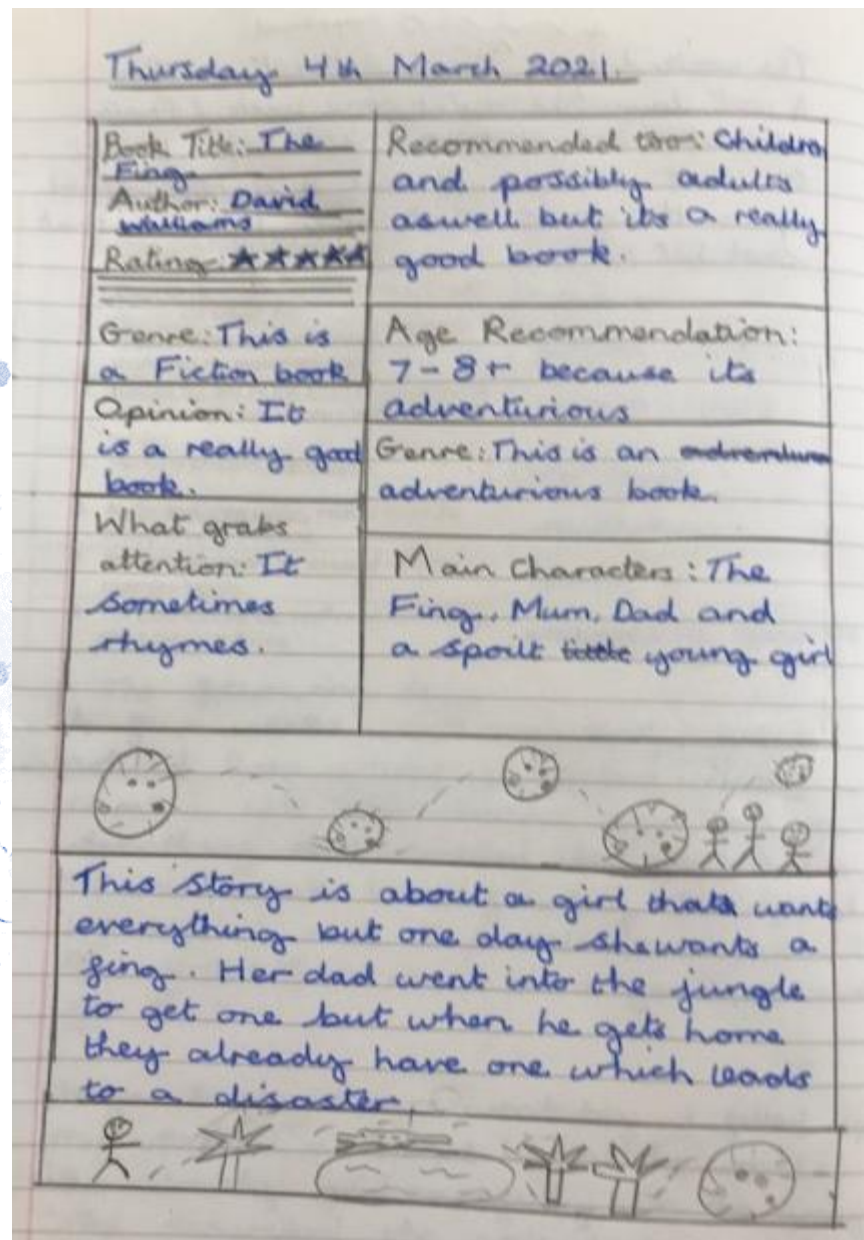 Thursday 4th March 2021.
Book Title: The
Fing
Author: David
Walliams
Rating ★★★★★
Genre: This is
a Fiction book
Opinion: It
is a really good
book.
What grabs
attention: It
sometimes
rhymes.
Recommended too: Children
and possibly adults
aswell but its a really
good book.
Age Recommendation:
7-8+ because its
adventurious
Genre: This is an
adventurious book.
Main Characters: The
Fing, Mum, Dad and
a spoilt little young girl
This story is about a girl that wants
everything but one day she wants a
fing. Her dad went into the jungle
to get one but when he gets home
they already have one which leads
to a disaster.